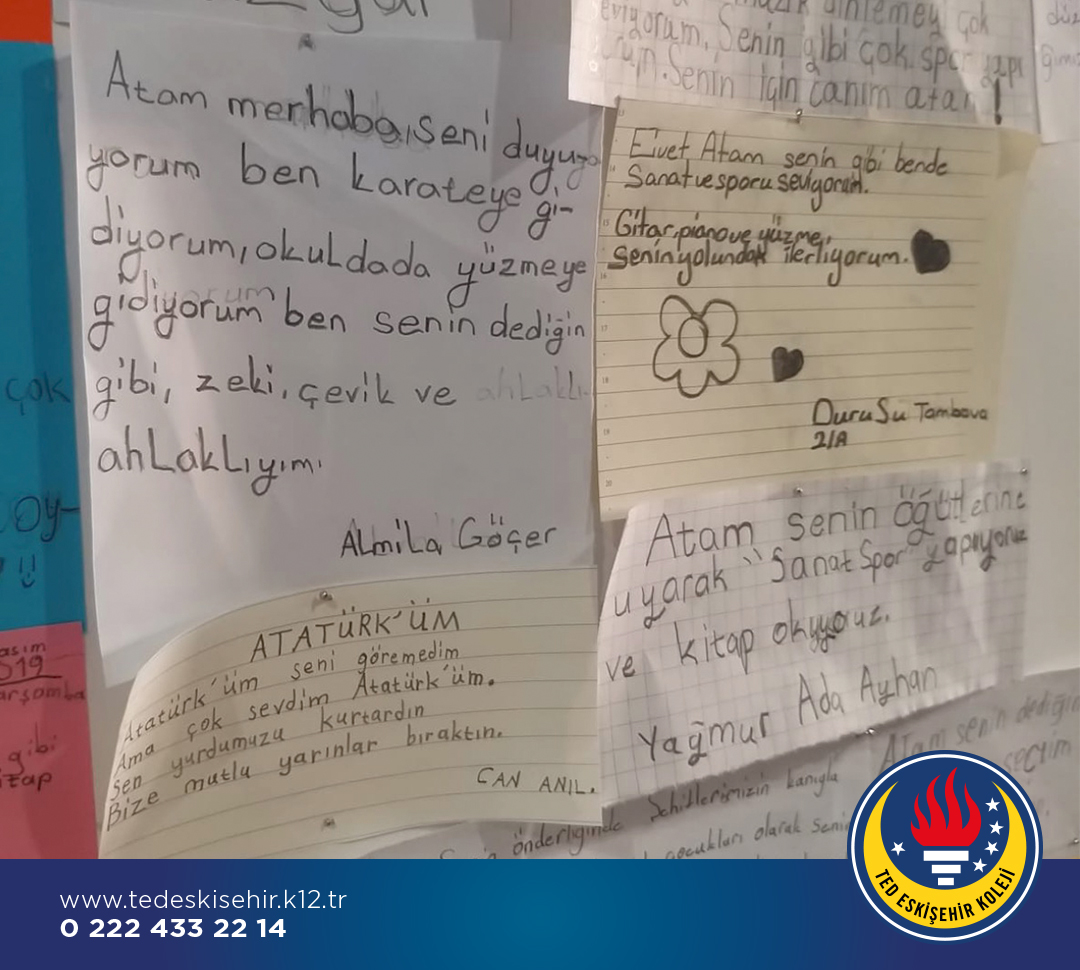 Atam merhaba, seni duyu
yorum ben karateye gi-
diyorum, okuldada yüzmeye
gidiyorum ben senin dediğin
gibi, zeki, çevik ve ahlaklı
ahlaklıyım.
Almila Göçer
çok
oy-
gibi
çok
seviyorum. Senin gibi çok spor
Senin için canım atam!
Evet Atam senin gibi bende
Sanat ve sporu seviyorum.
Gitar, piano ve yüzme,
senin yolundak ilerliyorum.
Duru Su Tambova
2/A
ATATÜRK'ÜM
Atatürk'üm seni göremedim
Ama çok sevdim Atatürk'üm.
Sen yurdumuzu kurtardın
Bize mutlu yarınlar bıraktın.
CAN ANIL.
Atam senin öğütlerine
uyarak "Sanat Spor" yapıyoruz
ve kitap okuyoruz.
Yağmur Ada Ayhan
Atam senin dediğin
seçtim
önderliğinde Şehitlerimizin kanıyla
çocukları olarak
TED ESKİŞEHİR KOLEJİ
www.tedeskisehir.k12.tr
0 222 433 22 14